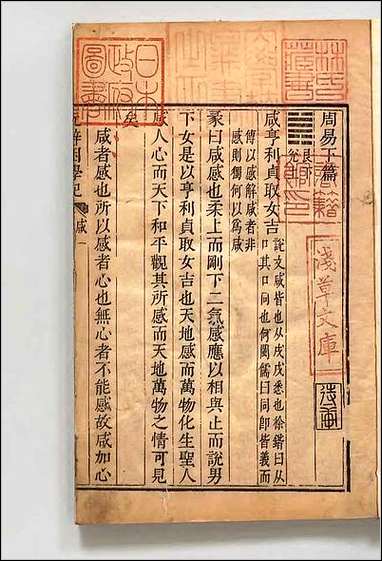 周易下篇
艮
兌
咸亨利貞取女吉 說文咸皆也从戌戌悉也徐鍇曰从
口共口同也何閩儒曰同卽皆義而
傳以感解咸者非
感則獨何以爲咸
彖曰咸感也柔上而剛下二氣感應以相與止而說男
下女是以亨利貞取女吉也天地感而萬物化生聖人
感人心而天下和平觀其所感而天地萬物之情可見
矣
咸者感也所以感者心也無心者不能感故咸加心
易學記
咸 一
日本
政府
圖書
林氏
藏書
淺草文庫